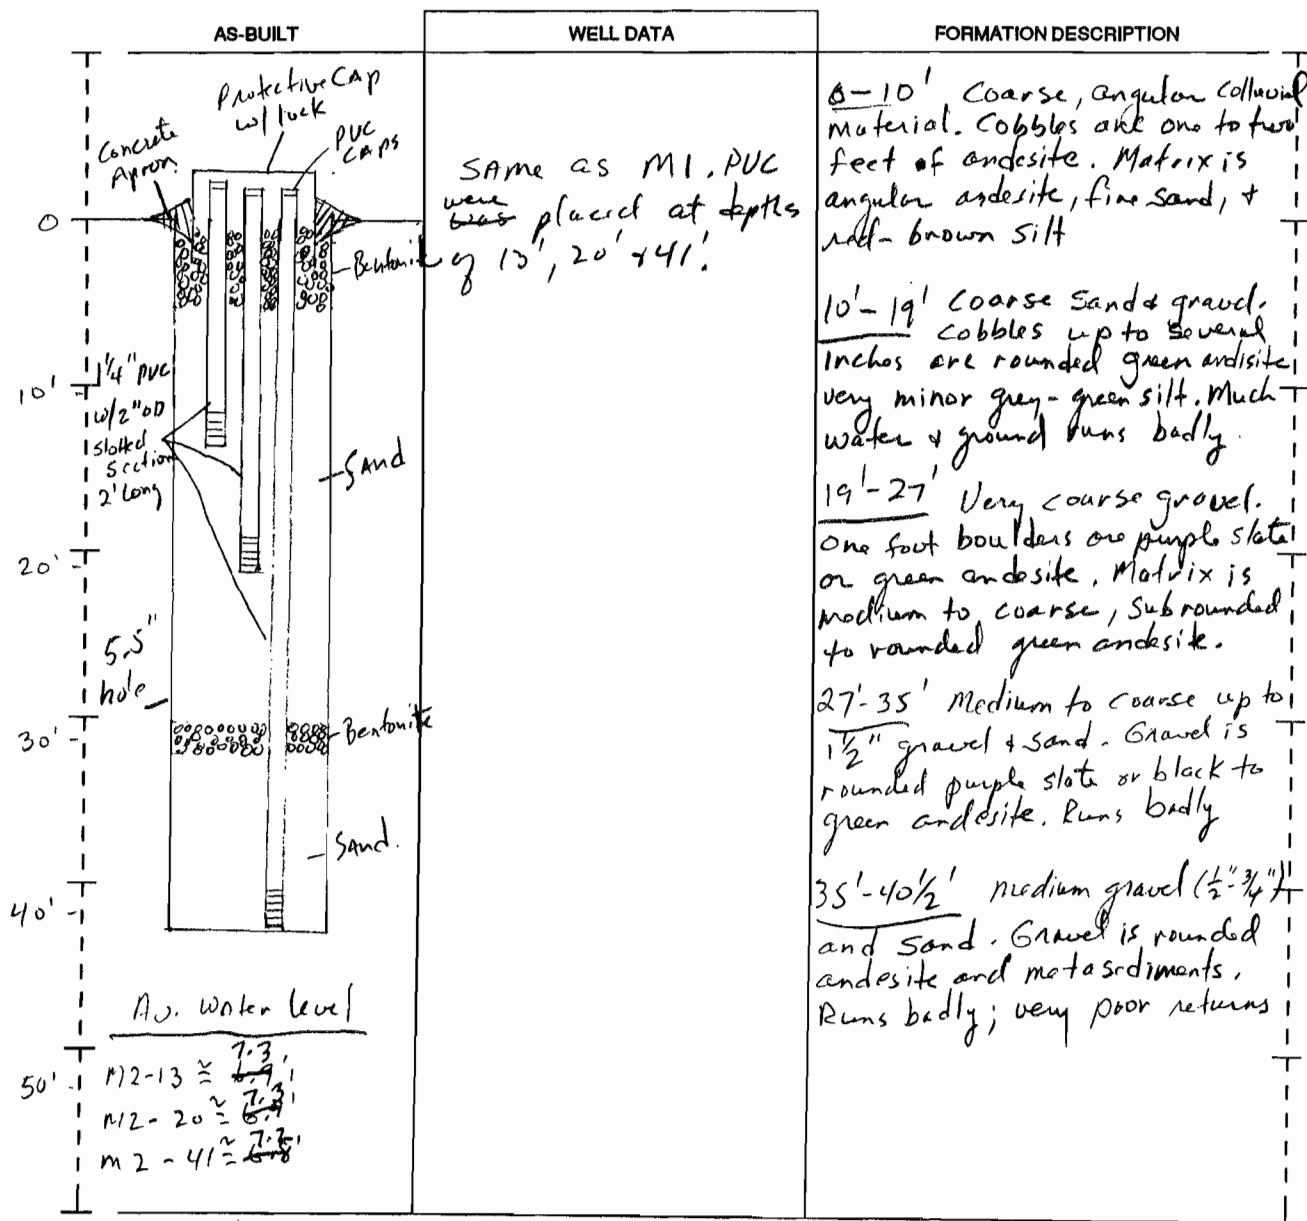 AS-BUILT
WELL DATA
FORMATION DESCRIPTION
Protective CAp
w/ lock
Concrete
Apron
PVC
CAPS
0
Bentonite
1 1/4" PVC
w/2" OD
Slotted
Section
2' Long
10'
Sand
20'
5.5"
hole
30'
Bentonite
Sand.
40'
Av. Water level
50'
M2-13 ≅ 7.3'
M2-20 ≅ 7.3'
M2-41 ≅ 7.2'
SAME as M1. PVC
were placed at depths
of 13', 20' & 41'.
0-10' Coarse, angular Colluvial
Material. Cobbles are one to two
feet of andesite. Matrix is
angular andesite, fine sand, &
red-brown silt
10'-19' Coarse Sand & gravel.
Cobbles up to Several
Inches are rounded green andisite
very minor grey-green silt. Much
water & ground runs badly.
19'-27' Very coarse gravel.
One foot boulders are purple slate
or green andesite. Matrix is
medium to coarse, Subrounded
to rounded green andesite.
27'-35' Medium to coarse up to
1 1/2" gravel & sand. Gravel is
rounded purple slate or black to
green andesite. Runs badly
35'-40 1/2' medium gravel (1/2"-3/4")
and Sand. Gravel is rounded
andesite and metasediments.
Runs badly; very poor returns